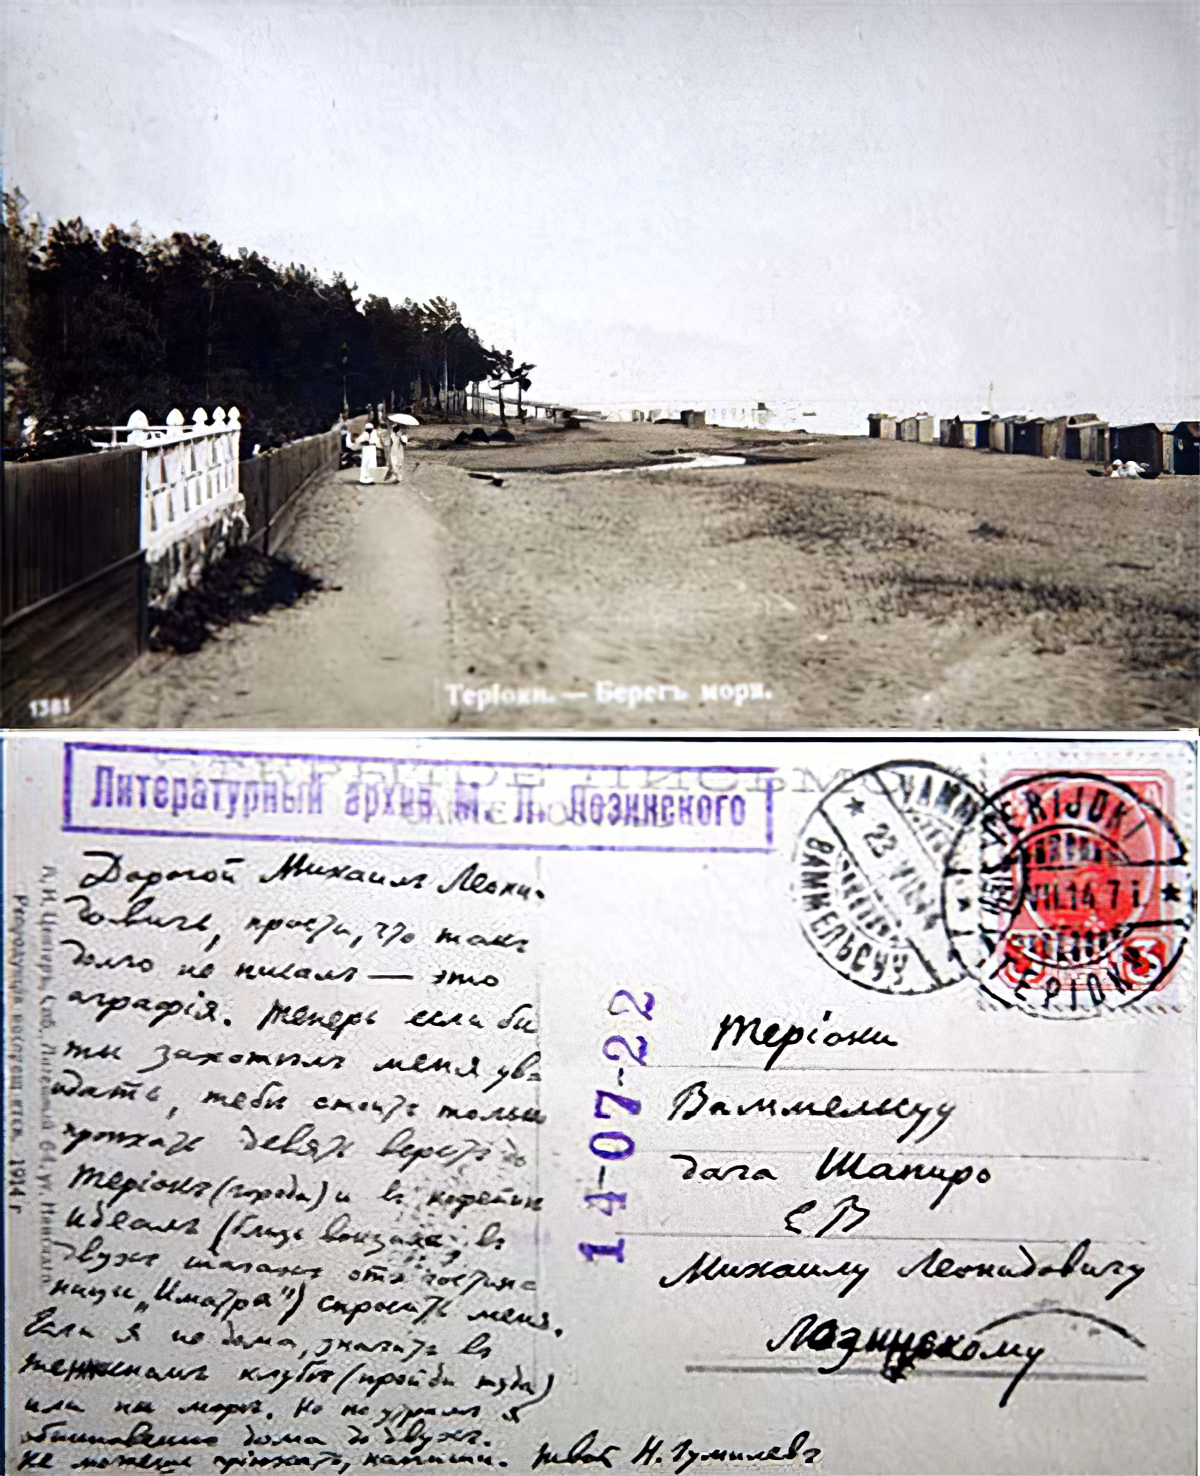 1381
Теріоки. — Берегъ моря.
ОТКРЫТОЕ ПИСЬМО
Литературный архив М. Л. Лозинского
VAMM
23
ВАММЕЛЬСУУ
TERIJOKI
VII.14 7 i.
ТЕРІОКИ
3 3
14-07-22
1914 г.
Дорогой Михаилъ Леони-
довичъ, прости, что такъ
долго не писалъ — это
аграфія. Теперь если бы
ты захотѣлъ меня уви
дать, тебѣ стоитъ только
проѣхать девять верстъ до
Теріокъ (города) и въ кофейнѣ
Идеалъ (близь вокзала, въ
двухъ шагахъ отъ гостин
ницы „Иматра") спросить меня.
Если я не дома, значитъ въ
теннисномъ клубѣ (пройди туда)
или на морѣ. Но по утрамъ я
обыкновенно дома до двухъ.
Не можешь пріѣхать, напиши. Твой Н. Гумилевъ
Теріоки
Ваммельсуу
дача Шапиро
ЕВ
Михаилу Леонидовичу
Лозинскому